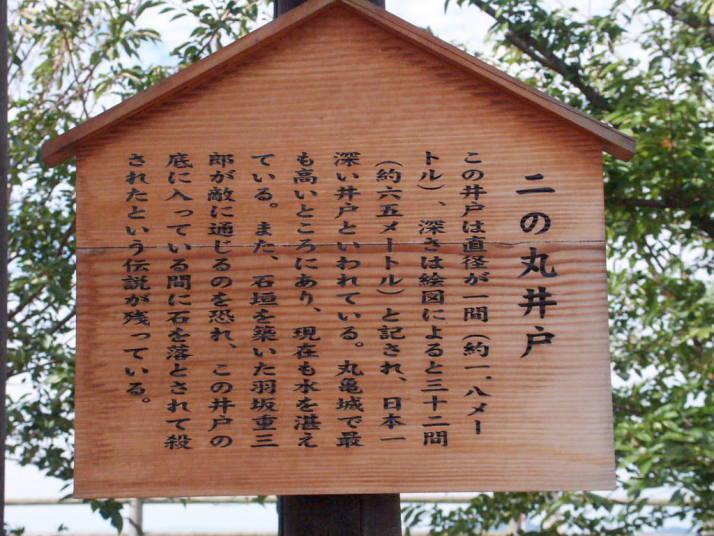 二の丸井戸
この井戸は直径が一間（約一.八メー
トル）、深さは絵図によると三十二間
（約六五メートル）と記され、日本一
深い井戸といわれている。丸亀城で最
も高いところにあり、現在も水を湛え
ている。また、石垣を築いた羽坂重三
郎が敵に通じるのを恐れ、この井戸の
底に入っている間に石を落とされて殺
されたという伝説が残っている。